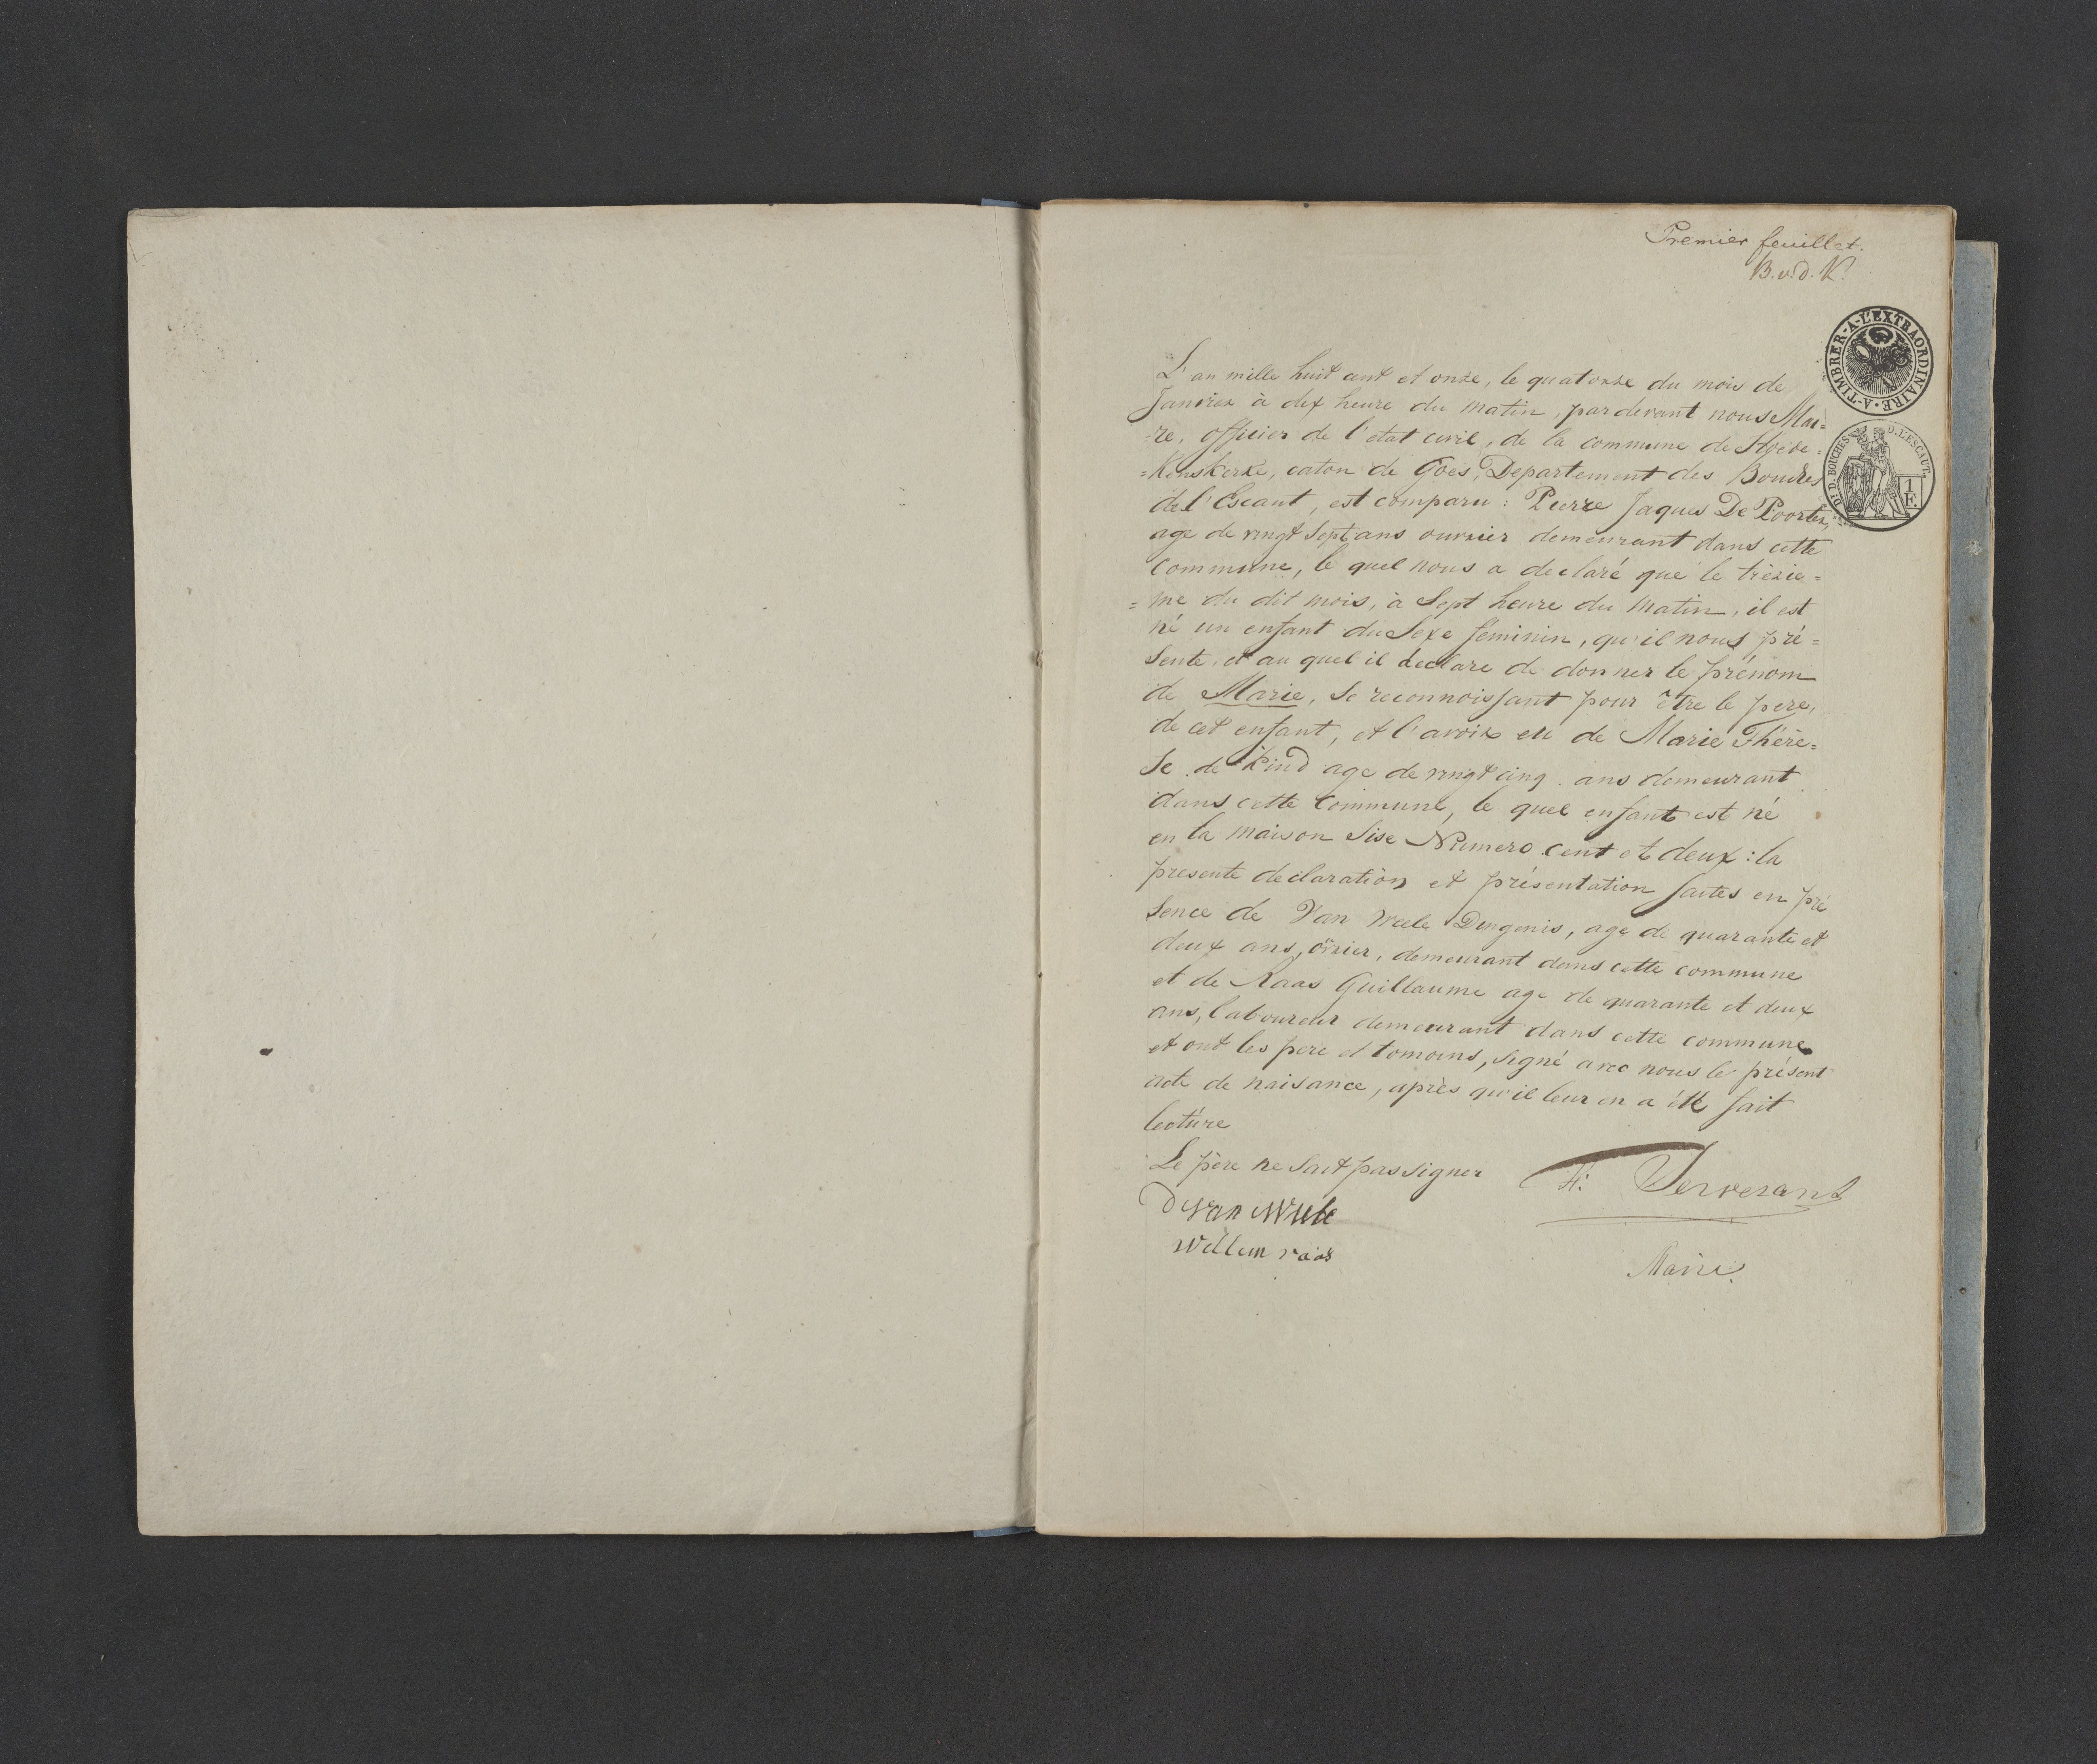 Premier feuillet.
B.v.d.K.
A-TIMBRER-A-L'EXTRAORDINAIRE
Dt. D. BOUCHES D. L'ESCAUT.
1
E
L'an mille huit cent et onze, le quatorze du mois de
Janvier à dix heure du matin, pardevant nous Mai=
=re, officier de l'etat civil, de la commune de Hoede=
=kenskerke, caton de Goes, Departement des Bouches
de l'Escaut, est comparu : Pierre Jaques De Poorter,
age de vingt Sept ans ouvrier demeurant dans cette
Commune, le quel nous a declaré que le trèzie=
=me du dit mois, à Sept heure du matin, il est
né un enfant du Sexe feminin, qu'il nous pré=
sente, et au quel il declare de donner le prénom
de Marie, Se reconnoissant pour être le pere,
de cet enfant, et l'avoir eu de Marie Thérè=
Se de Kind age de vingt cinq ans demeurant
dans cette Commune, le quel enfant est né
en la maison Sise Numero Cent et deux : la
presente declaration et présentation faites en pré
sence de Van Weele Dingenis, age de quarante et
deux ans, demeurant dans cette commune
et de Raas Guillaume age de quarante et deux
ans, laboureur demeurant dans cette commune
et ont les pere et tomoins, signé avec nous le présent
acte de naisance, après qu'il leur en a été fait
lecture
Le père ne Sait pas signer
D van Weele
Willem raas
Serverant
Maire.